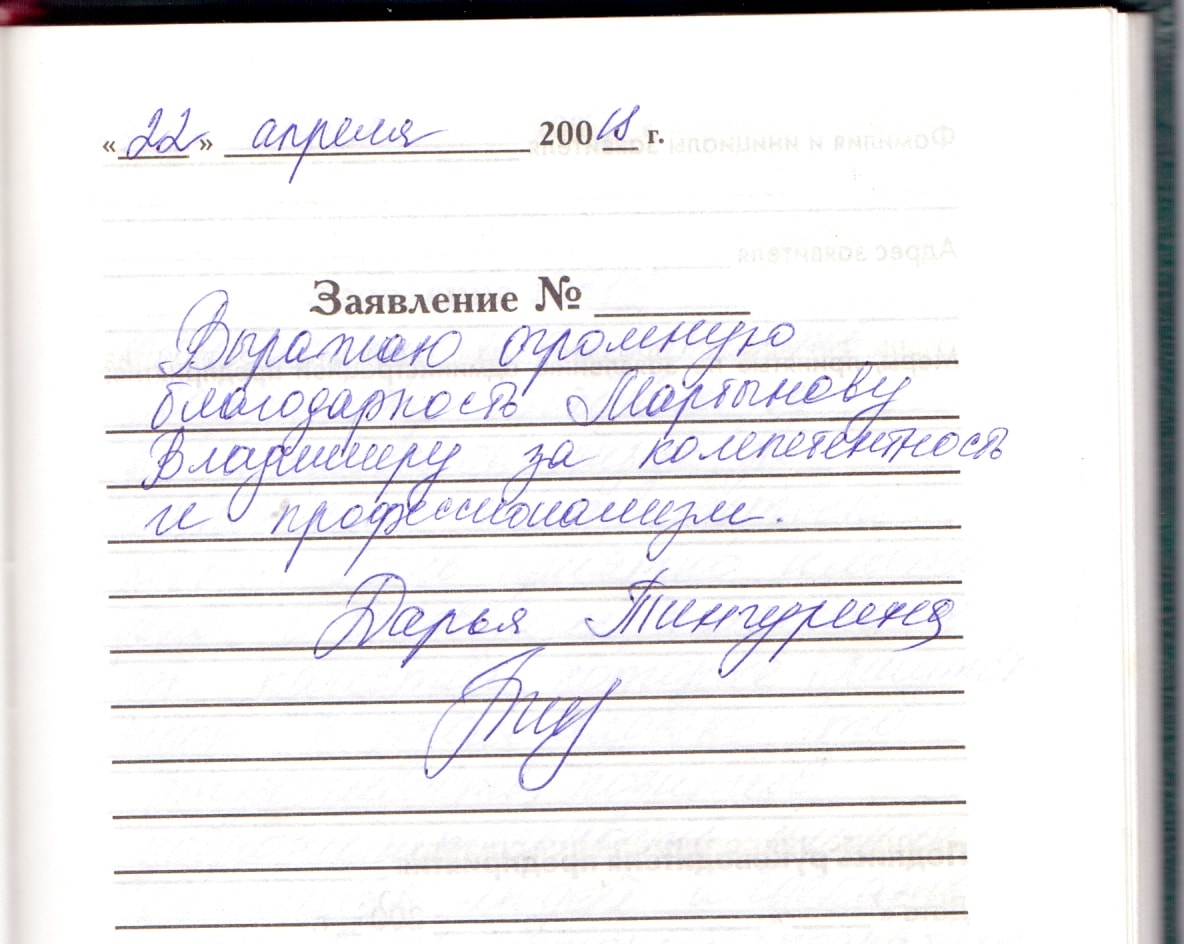 «22» апреля 200 18 г.
Заявление №
Выражаю огромную
благодарность Мартынову
Владимиру за компетентность
и профессионализм.
Дарья Тингурина